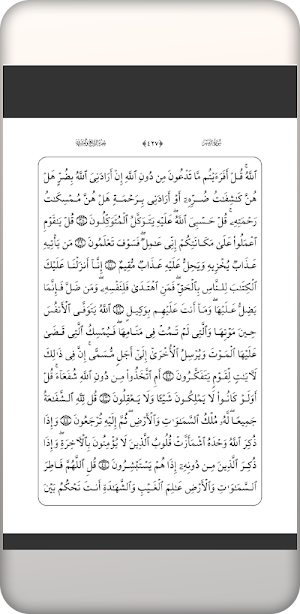 ﴿٤٢٧﴾
ٱللَّهُۚ قُلۡ أَفَرَءَيۡتُم مَّا تَدۡعُونَ مِن دُونِ ٱللَّهِ إِنۡ أَرَادَنِيَ ٱللَّهُ بِضُرٍّ هَلۡ
هُنَّ كَٰشِفَٰتُ ضُرِّهِۦٓ أَوۡ أَرَادَنِي بِرَحۡمَةٍ هَلۡ هُنَّ مُمۡسِكَٰتُ
رَحۡمَتِهِۦۚ قُلۡ حَسۡبِيَ ٱللَّهُۖ عَلَيۡهِ يَتَوَكَّلُ ٱلۡمُتَوَكِّلُونَ ۝ قُلۡ يَٰقَوۡمِ
ٱعۡمَلُواْ عَلَىٰ مَكَانَتِكُمۡ إِنِّي عَٰمِلٞۖ فَسَوۡفَ تَعۡلَمُونَ ۝ مَن يَأۡتِيهِ
عَذَابٞ يُخۡزِيهِ وَيَحِلُّ عَلَيۡهِ عَذَابٞ مُّقِيمٌ ۝ إِنَّآ أَنزَلۡنَا عَلَيۡكَ
ٱلۡكِتَٰبَ لِلنَّاسِ بِٱلۡحَقِّۖ فَمَنِ ٱهۡتَدَىٰ فَلِنَفۡسِهِۦۖ وَمَن ضَلَّ فَإِنَّمَا
يَضِلُّ عَلَيۡهَاۖ وَمَآ أَنتَ عَلَيۡهِم بِوَكِيلٍ ۝ ٱللَّهُ يَتَوَفَّى ٱلۡأَنفُسَ
حِينَ مَوۡتِهَا وَٱلَّتِي لَمۡ تَمُتۡ فِي مَنَامِهَاۖ فَيُمۡسِكُ ٱلَّتِي قَضَىٰ
عَلَيۡهَا ٱلۡمَوۡتَ وَيُرۡسِلُ ٱلۡأُخۡرَىٰٓ إِلَىٰٓ أَجَلٖ مُّسَمًّىۚ إِنَّ فِي ذَٰلِكَ
لَأٓيَٰتٖ لِّقَوۡمٖ يَتَفَكَّرُونَ ۝ أَمِ ٱتَّخَذُواْ مِن دُونِ ٱللَّهِ شُفَعَآءَۚ قُلۡ
أَوَلَوۡ كَانُواْ لَا يَمۡلِكُونَ شَيۡـٔٗا وَلَا يَعۡقِلُونَ ۝ قُل لِّلَّهِ ٱلشَّفَٰعَةُ
جَمِيعٗاۖ لَّهُۥ مُلۡكُ ٱلسَّمَٰوَٰتِ وَٱلۡأَرۡضِۖ ثُمَّ إِلَيۡهِ تُرۡجَعُونَ ۝ وَإِذَا
ذُكِرَ ٱللَّهُ وَحۡدَهُ ٱشۡمَأَزَّتۡ قُلُوبُ ٱلَّذِينَ لَا يُؤۡمِنُونَ بِٱلۡأٓخِرَةِۖ وَإِذَا
ذُكِرَ ٱلَّذِينَ مِن دُونِهِۦٓ إِذَا هُمۡ يَسۡتَبۡشِرُونَ ۝ قُلِ ٱللَّهُمَّ فَاطِرَ
ٱلسَّمَٰوَٰتِ وَٱلۡأَرۡضِ عَٰلِمَ ٱلۡغَيۡبِ وَٱلشَّهَٰدَةِ أَنتَ تَحۡكُمُ بَيۡنَ